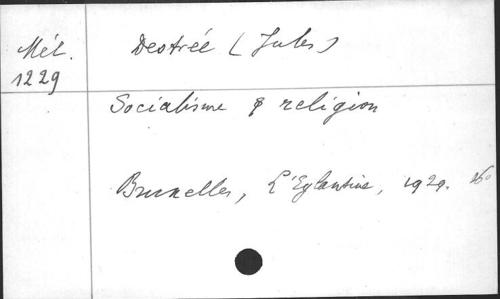 Mél. Destrée (Jules)
1229
Socialisme & religion
Bruxelles, L'Eglantine, 1929.